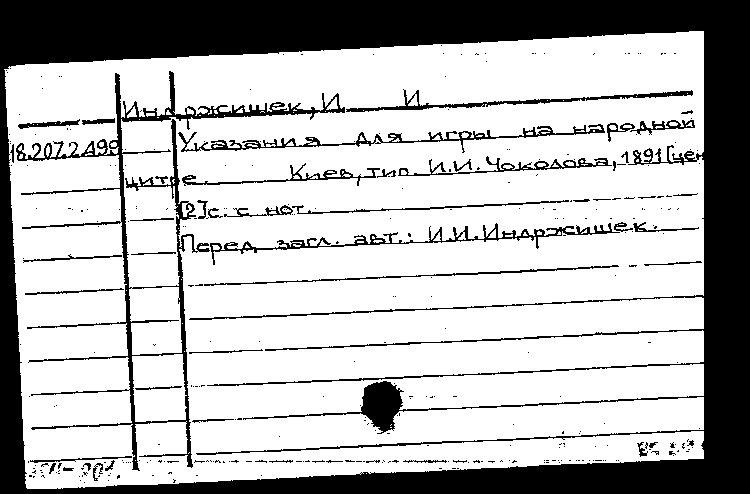 Индржишек, И. И.
18.207.2.499 Указания для игры на народной
цитре. Киев, тип. И.И. Чоколова, 1891 [цен
[2]с. с нот.
Перед загл. авт.: И.И. Индржишек.